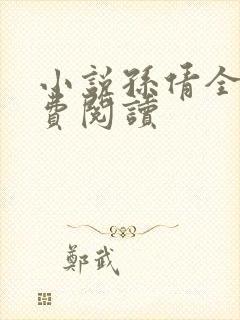 小說孫倩全
費閱讀
鄭武